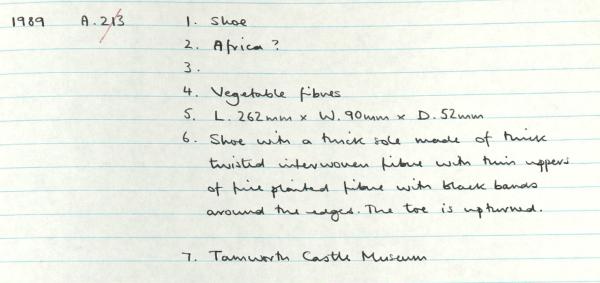 1989 A.213 1. Shoe
2. Africa?
3.
4. Vegetable fibres
5. L. 262mm x W. 90mm x D. 52mm
6. Shoe with a thick sole made of thick
twisted interwoven fibre with thin uppers
of fine plaited fibre with black bands
around the edges. The toe is upturned.
7. Tamworth Castle Museum